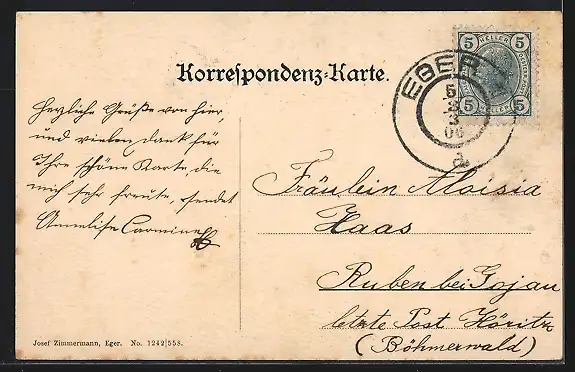 Korrespondenz-Karte.
5 HELLER 5
5 HELLER 5
EGER
5
2
3
06
d
Herzliche Grüße von hier,
und vielen dank für
Ihre schöne Karte die
mich sehr freute, sendet
Annelise
Fräulein Aloisia
Haas
Ruben bei Gojau
letzte Post Höritz
(Böhmerwald)
Josef Zimmermann, Eger. No. 1242|558.